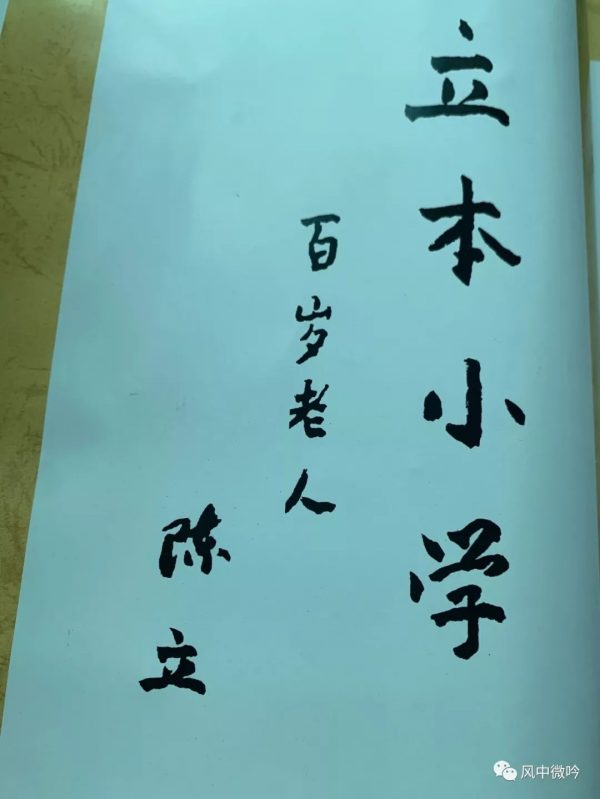 立本小学
百岁老人
陈立
风中微吟